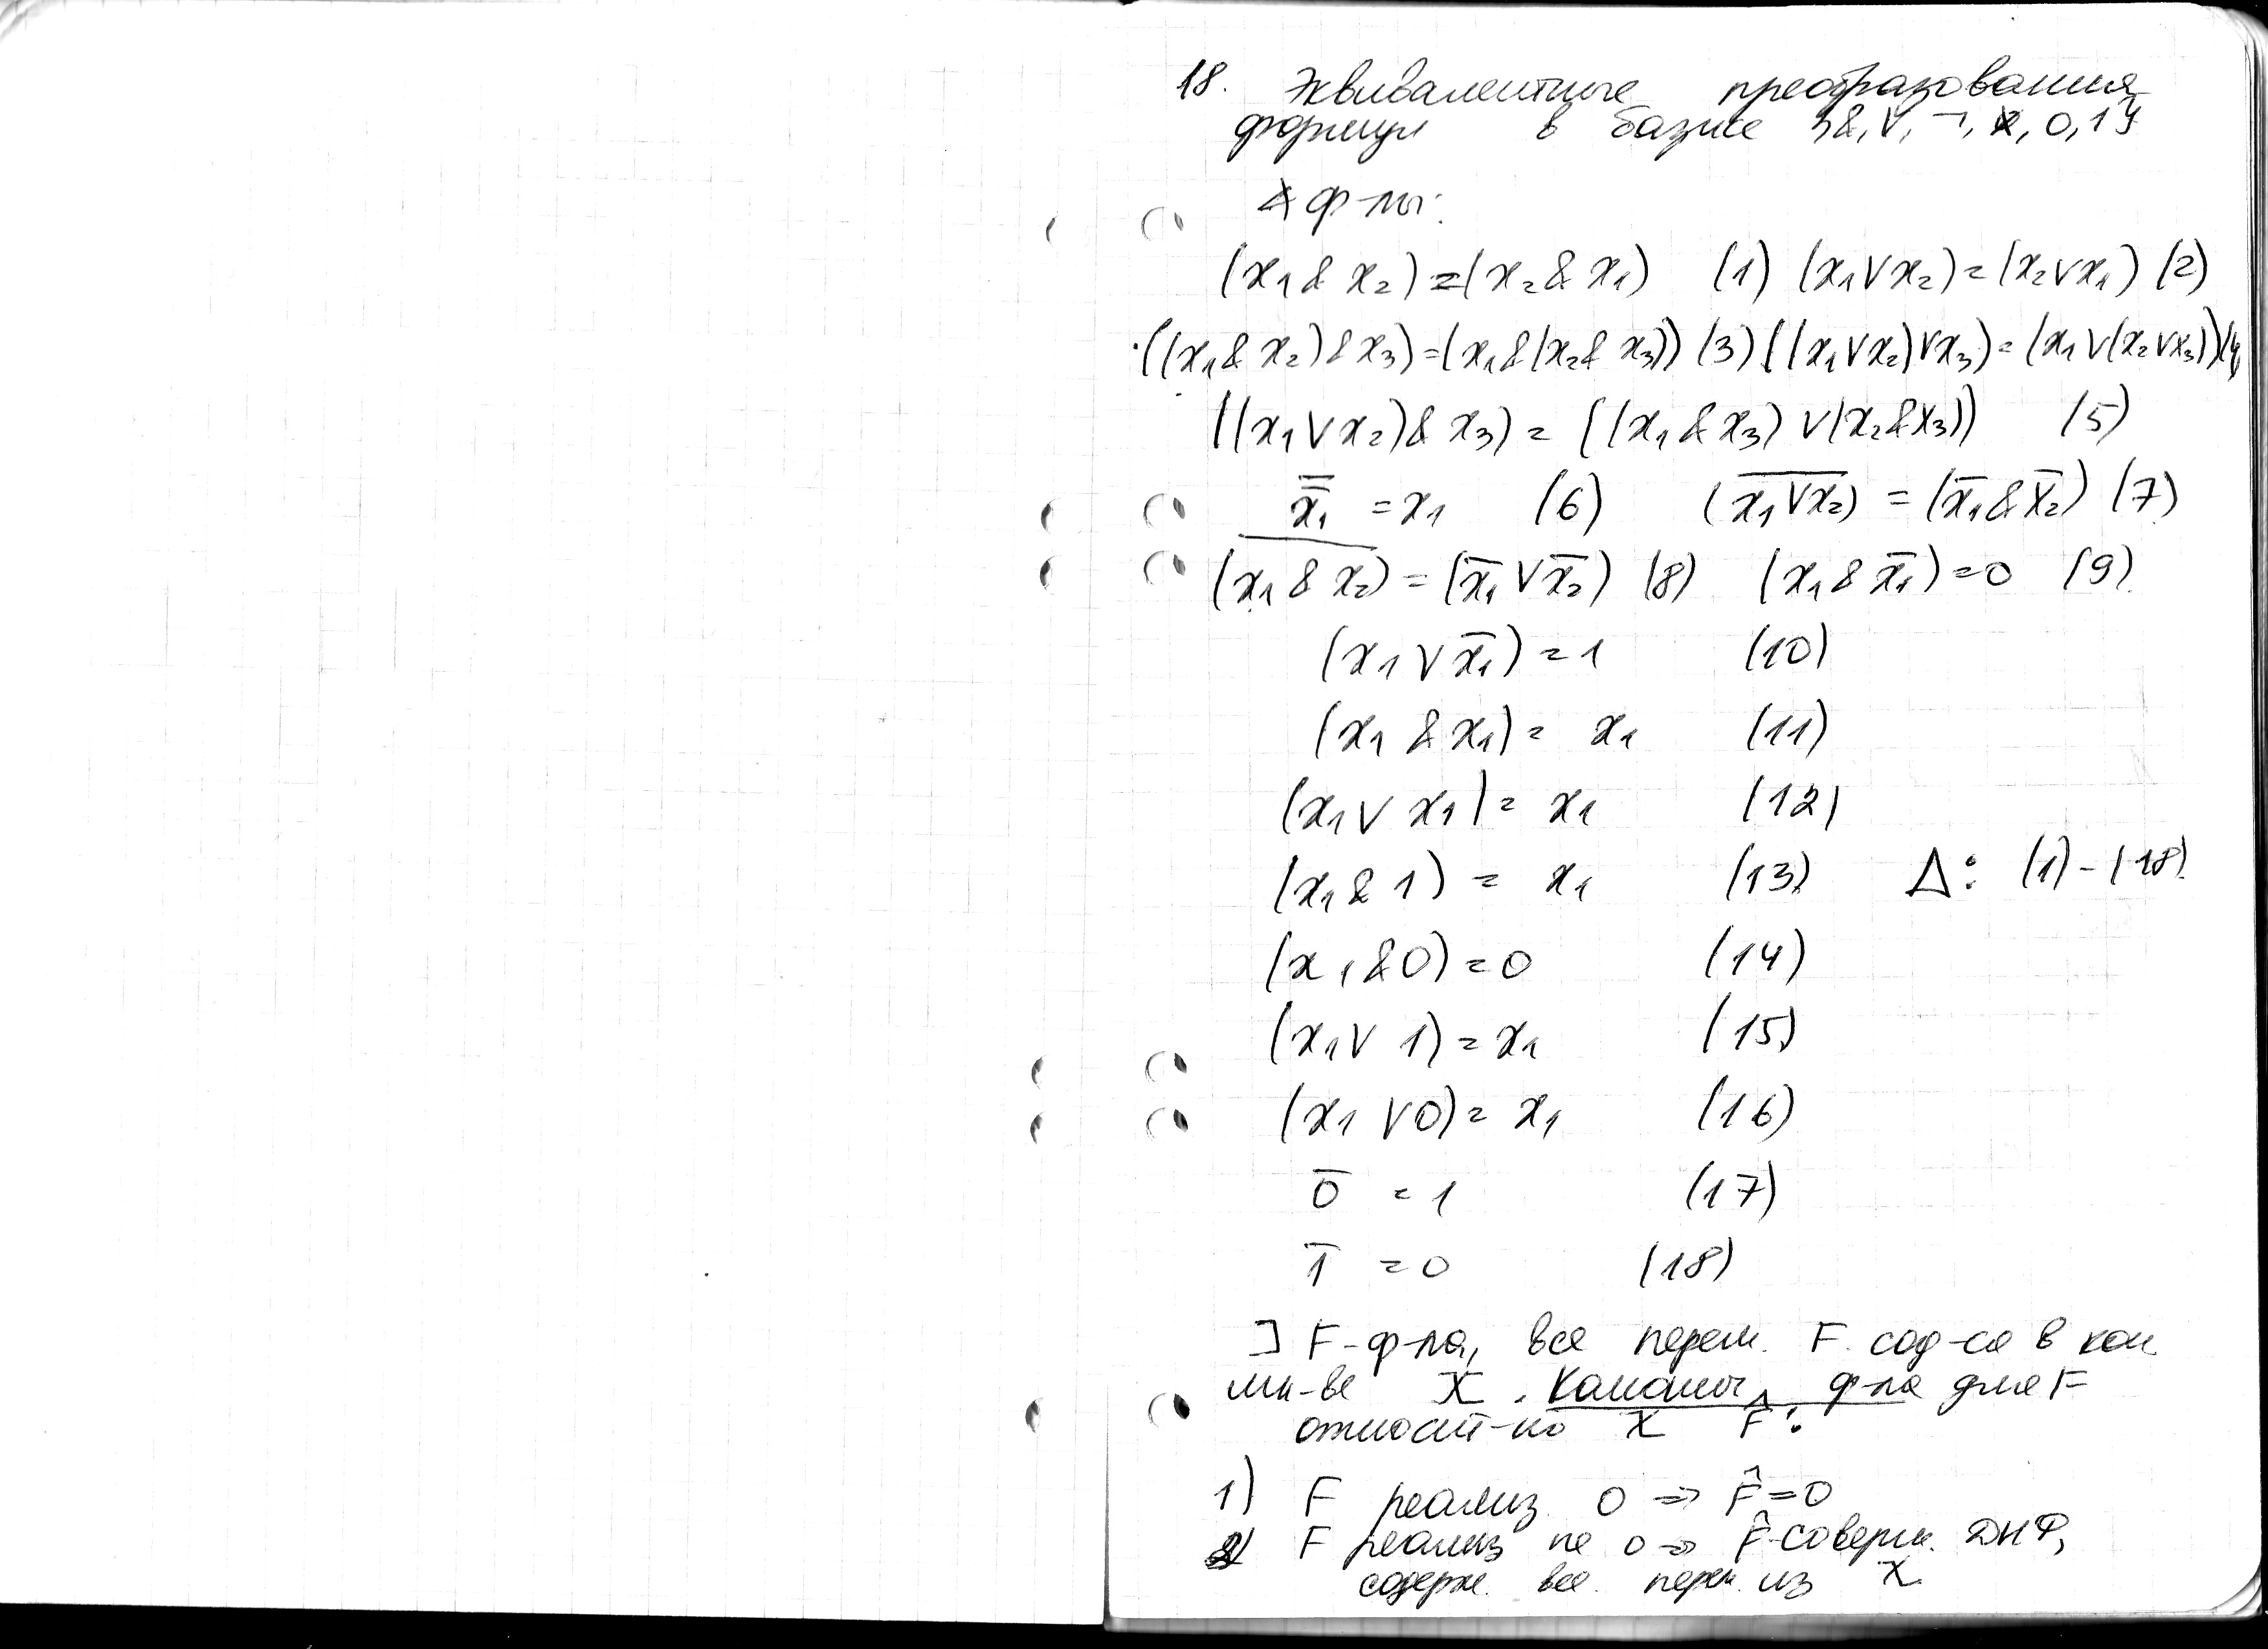 18. Эквивалентные преобразования
формул в базисе {&, V, ¬, 0, 1}
∢ ф-лы:
(x₁ & x₂) = (x₂ & x₁) (1) (x₁ V x₂) = (x₂ V x₁) (2)
((x₁ & x₂) & x₃) = (x₁ & (x₂ & x₃)) (3) ((x₁ V x₂) V x₃) = (x₁ V (x₂ V x₃)) (4)
((x₁ V x₂) & x₃) = ((x₁ & x₃) V (x₂ & x₃)) (5)
x̿₁ = x₁ (6) \overline{(x₁ V x₂)} = (x̄₁ & x̄₂) (7)
\overline{(x₁ & x₂)} = (x̄₁ V x̄₂) (8) (x₁ & x̄₁) = 0 (9)
(x₁ V x̄₁) = 1 (10)
(x₁ & x₁) = x₁ (11)
(x₁ V x₁) = x₁ (12)
(x₁ & 1) = x₁ (13) Δ: (1) - (18)
(x₁ & 0) = 0 (14)
(x₁ V 1) = x₁ (15)
(x₁ V 0) = x₁ (16)
0̄ = 1 (17)
1̄ = 0 (18)
⊐ F-ф-ла, все перем. F сод-ся в кон.
мн-ве X. Канонич. ф-ла для F
относит-но X F̂:
1) F реализ. 0 => F̂ = 0
2) F реализ не 0 => F̂-соверш. ДНФ,
содерж. все перем. из X